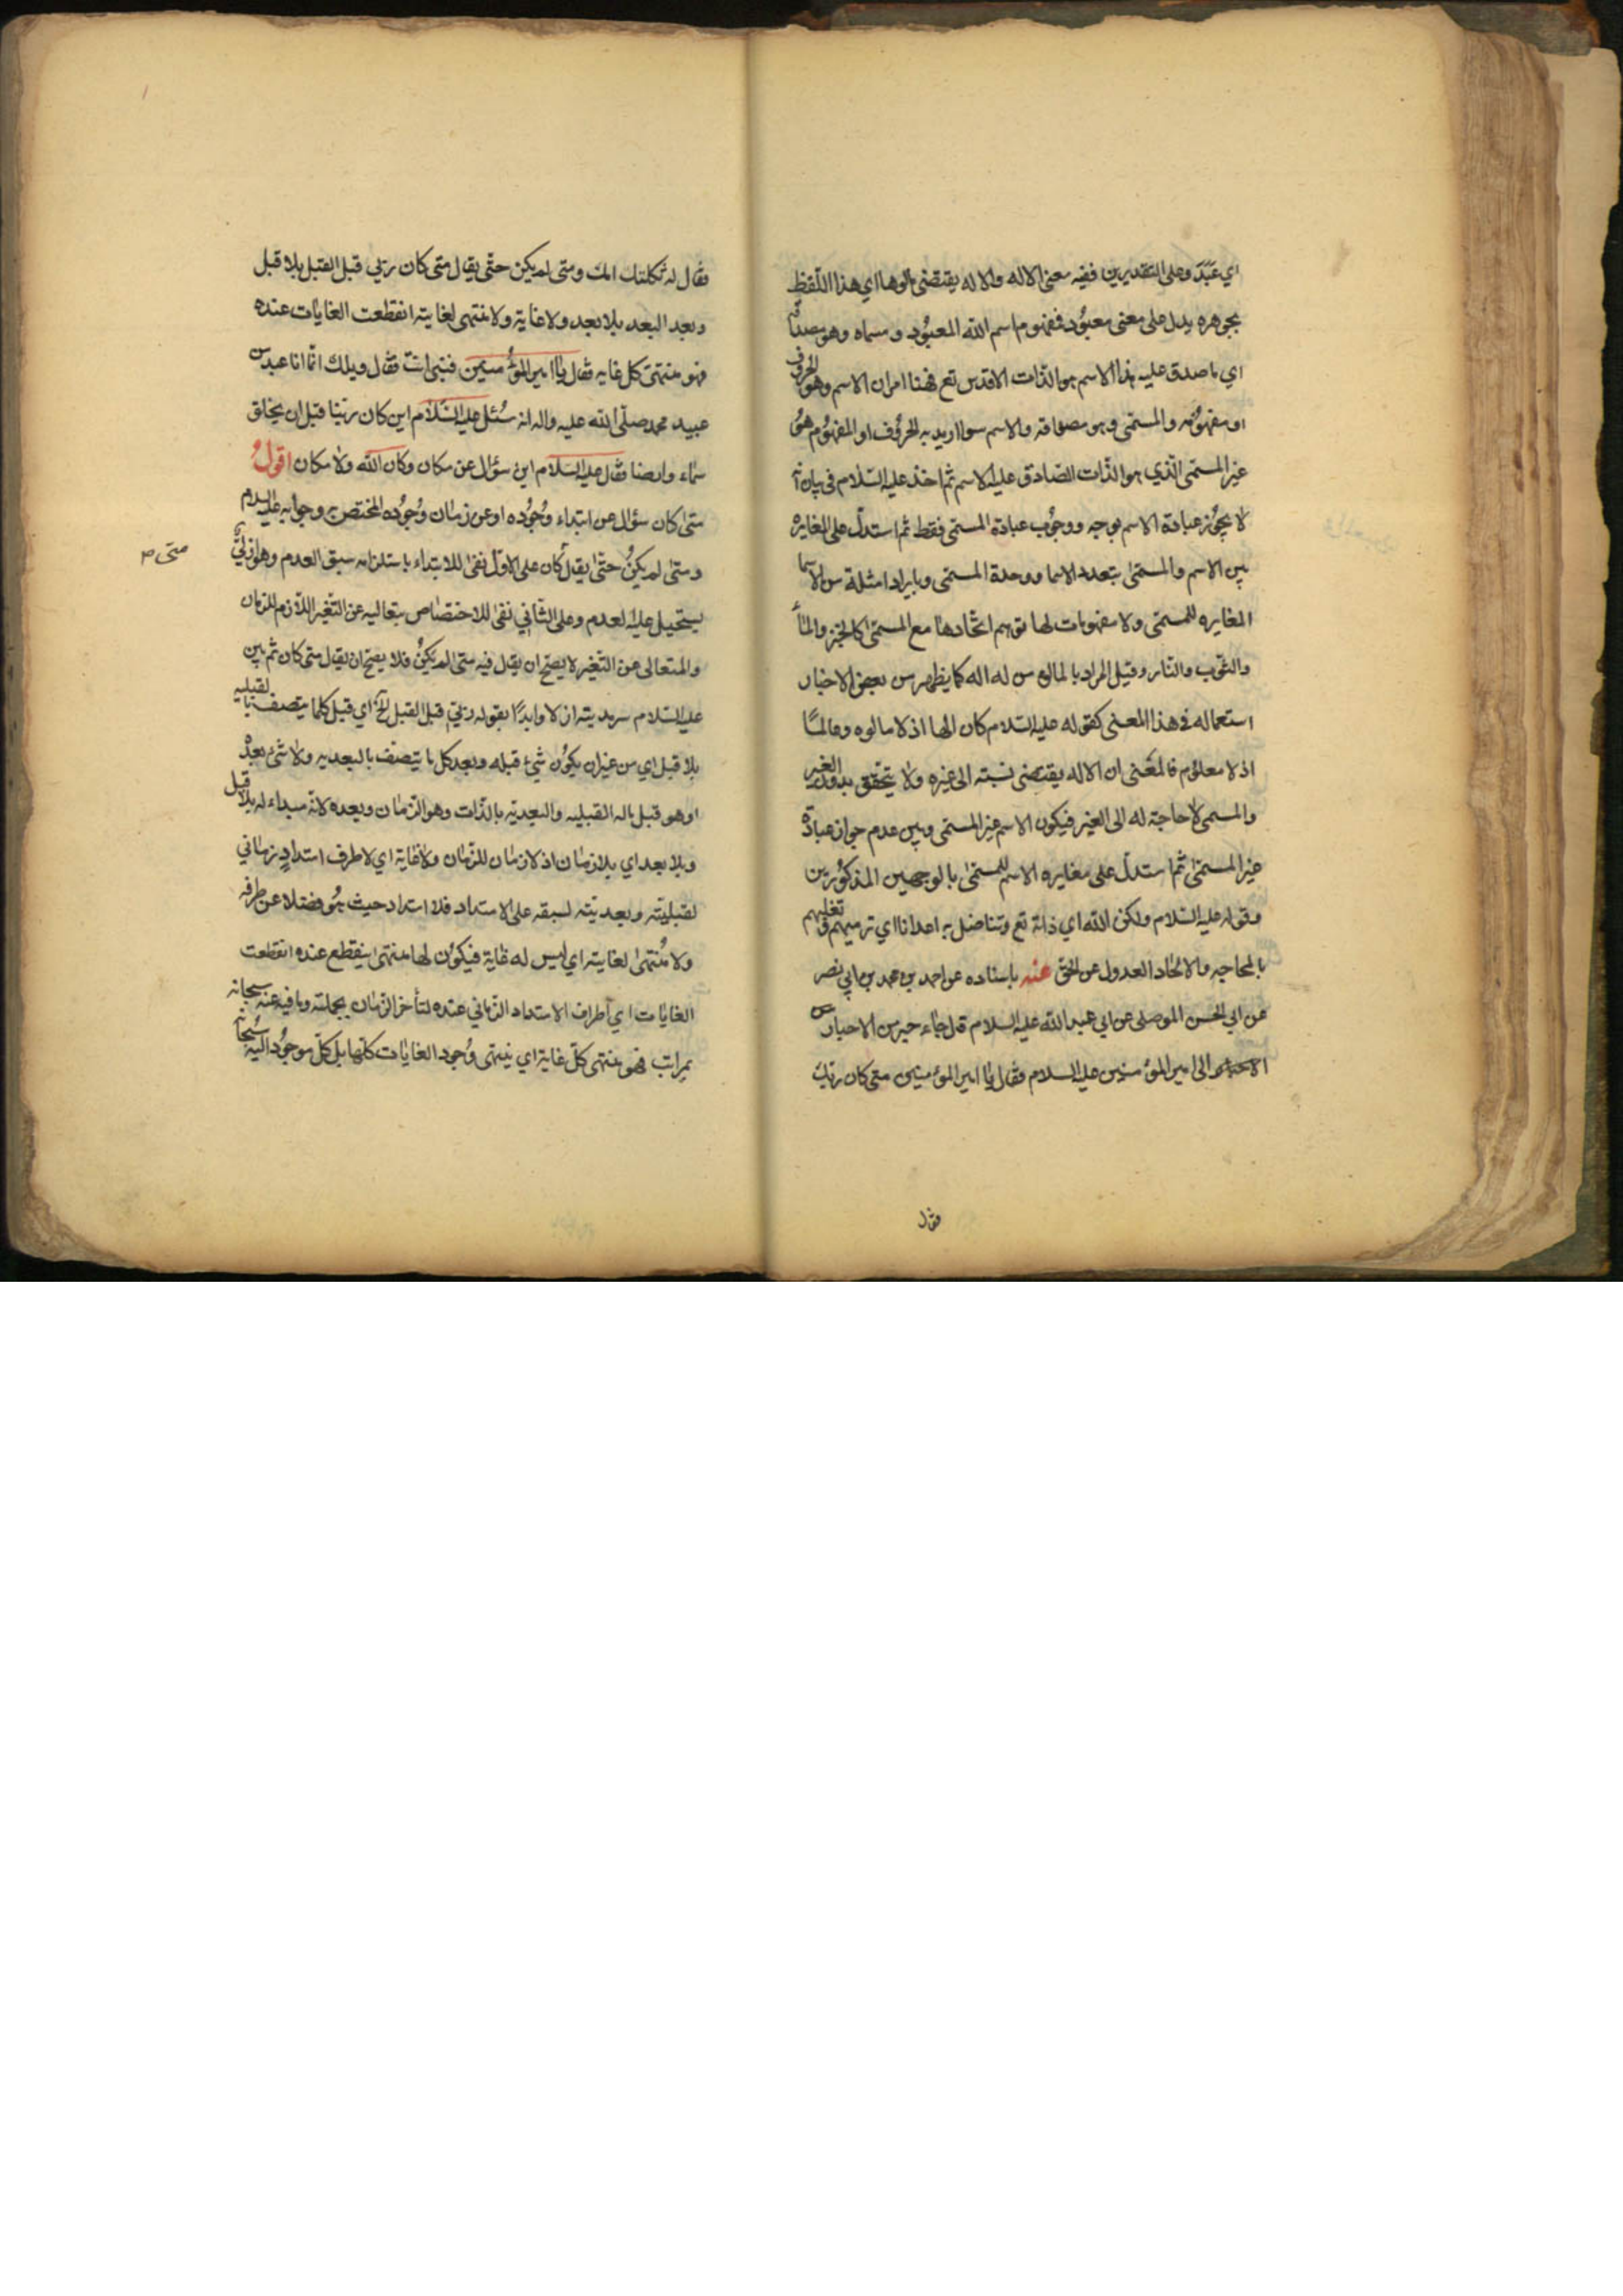 اي عَبَدَ وعلى التقديرين ففيه معنى الاله والاله يقتضى مالوها اي هذا اللفظ
بجوهره يدل على معنى معبُود فمفهوم اسم الله المعبُود ومسماه وهو مصداقه
اي ما صدق عليه هذا الاسم هو الذات الاقدس تع فههنا امران الاسم وهو الحروف
او مفهومُه والمسمّى وهو مصداقه والاسم سوا اريد به الحرُوف او المفهُوم هوُ
غير المسمّى الّذي هو الذات الصّادق عليه الاسم ثم اخذ عليه السّلام فى بيان انّه
لا يجوُز عبادة الاسم بوجه ووجُوب عبادة المسمّى فقط ثم استدلّ على المغايره
بين الاسم والمسمّى بتعدد الاسما ووحدة المسمّى وبايراد امثلة من الاسما
المغايره للمسمّى ولا مفهومات لها توهم اتّحادها مع المسمّى كالخبز والمأ
والثوّب والنّار وقيل المراد بالمالوه من له اله كما يظهر من بعض الاخبار
استعماله فى هذا المعنى كقوله عليه السّلام كان الها اذ لا مالوه وعالمًا
اذ لا معلوُم فالمعَنى ان الاله يقتضى نسبته الى غيره ولا يتحقق بدون الغير
والمسمى لا حاجة له الى الغير فيكون الاسم غير المسمّى وبين عدم جواز عبادة
غير المسمّى ثم استدلّ على مغايره الاسم للمسمّى بالوجهين المذكوُرين
وقوله عليه السّلام ولكن الله اي ذاته تع وتناضل به اعدانا اي ترميهم وتغلبهم
بالمحاجه والالحاد العدول عن الحق عنه باسناده عن احمد بن محمد بن ابي نصر
عن ابي الحسن الموصلى عن ابي عبد الله عليه السلام قال جاء حبر من الاحبار
الى امير المؤمنين عليه السلام فقال يا امير المؤمنين متى كان ربّك
فقال
فقال له ثكلتك امك ومتى لم يكن حتّى يقال متى كان ربّي قبل القبل بلا قبل
وبعد البعد بلا بعد ولا غاية ولا منتهى لغايته انقطعت الغايات عنده
فهو منتهى كل غايه فقال يا امير المؤُمنين فنبى انت فقال ويلك انّما انا عبد من
عبيد محمد صلّى الله عليه واله انه سُئل عليه السّلام اين كان ربّنا قبل ان يخلق
سماء وارضا فقال عليه السّلام اين سؤال عن مكان وكان الله ولا مكان اقولُ
متى كان سؤال عن ابتداء وُجوُده او عن زمان وُجوُده المختص به وجوابه عليه السلام
ومتى لم يكنُ حتّى يقال كان على الاوّل نفى للابتداء باستلزامه سبق العدم وهو ازليّ
متى م
يستحيل عليه العدم وعلى الثّاني نفى للاختصاص بتعاليه عن التّغير اللّازم للزمان
والمتعالى عن التّغير لا يصح ان يقال فيه متى لم يكنُ فلا يصح ان يقال متى كان ثم بين
عليه السّلام سرمديته ازلا وابدًا بقوله ربّي قبل القبل الخ اي قبل كلما يتصف بالقبليه
بلا قبل اي من غير ان يكوُن شيء قبله وبعد كل ما يتّصف بالبعديه ولا شئ بعدُه
او هو قبل ماله القبليه والبعديّه بالذّات وهو الزمان وبعده لانّه مبداء له بلا قبل
وبلا بعد اي بلا زمان اذ لا زمان للزّمان ولا غاية اي لا طرف امتدادٍ زماني
لقبليّته وبعديّته لسبقه على الامتداد فلا امتداد حيث هوُ فضلا عن طرفه
ولا مُنتهى لغايته اي ليس له غاية فيكوُن لها منتهى ينقطع عنده انقطعت
الغايات اي اطراف الامتداد الزماني عنده لتأخر الزمان بجملته وما فيه عنه سبحانه
بمراتب فهو منتهى كلّ غاية اي ينتهى وُجود الغايات كلّها بل كلّ موجوُد اليه سُبحانه